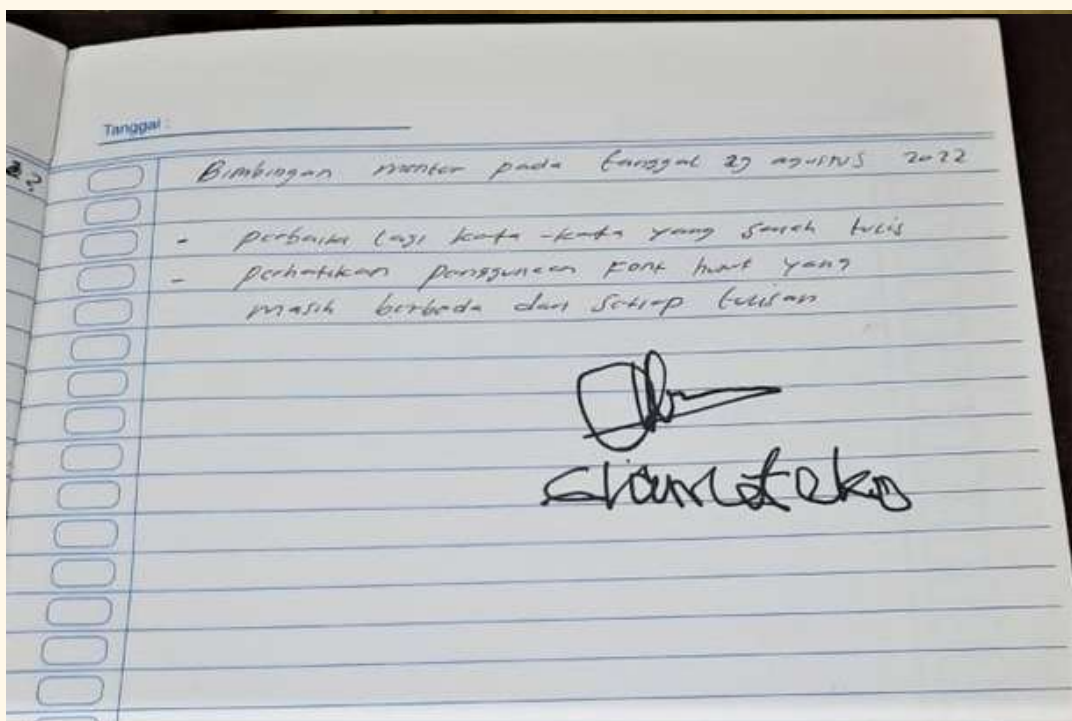 Tanggal :
Bimbingan mentor pada tanggal 29 agustus 2022
- perbaiki lagi kata-kata yang salah tulis
- perhatikan penggunaan Font huruf yang
masih berbeda dari setiap tulisan